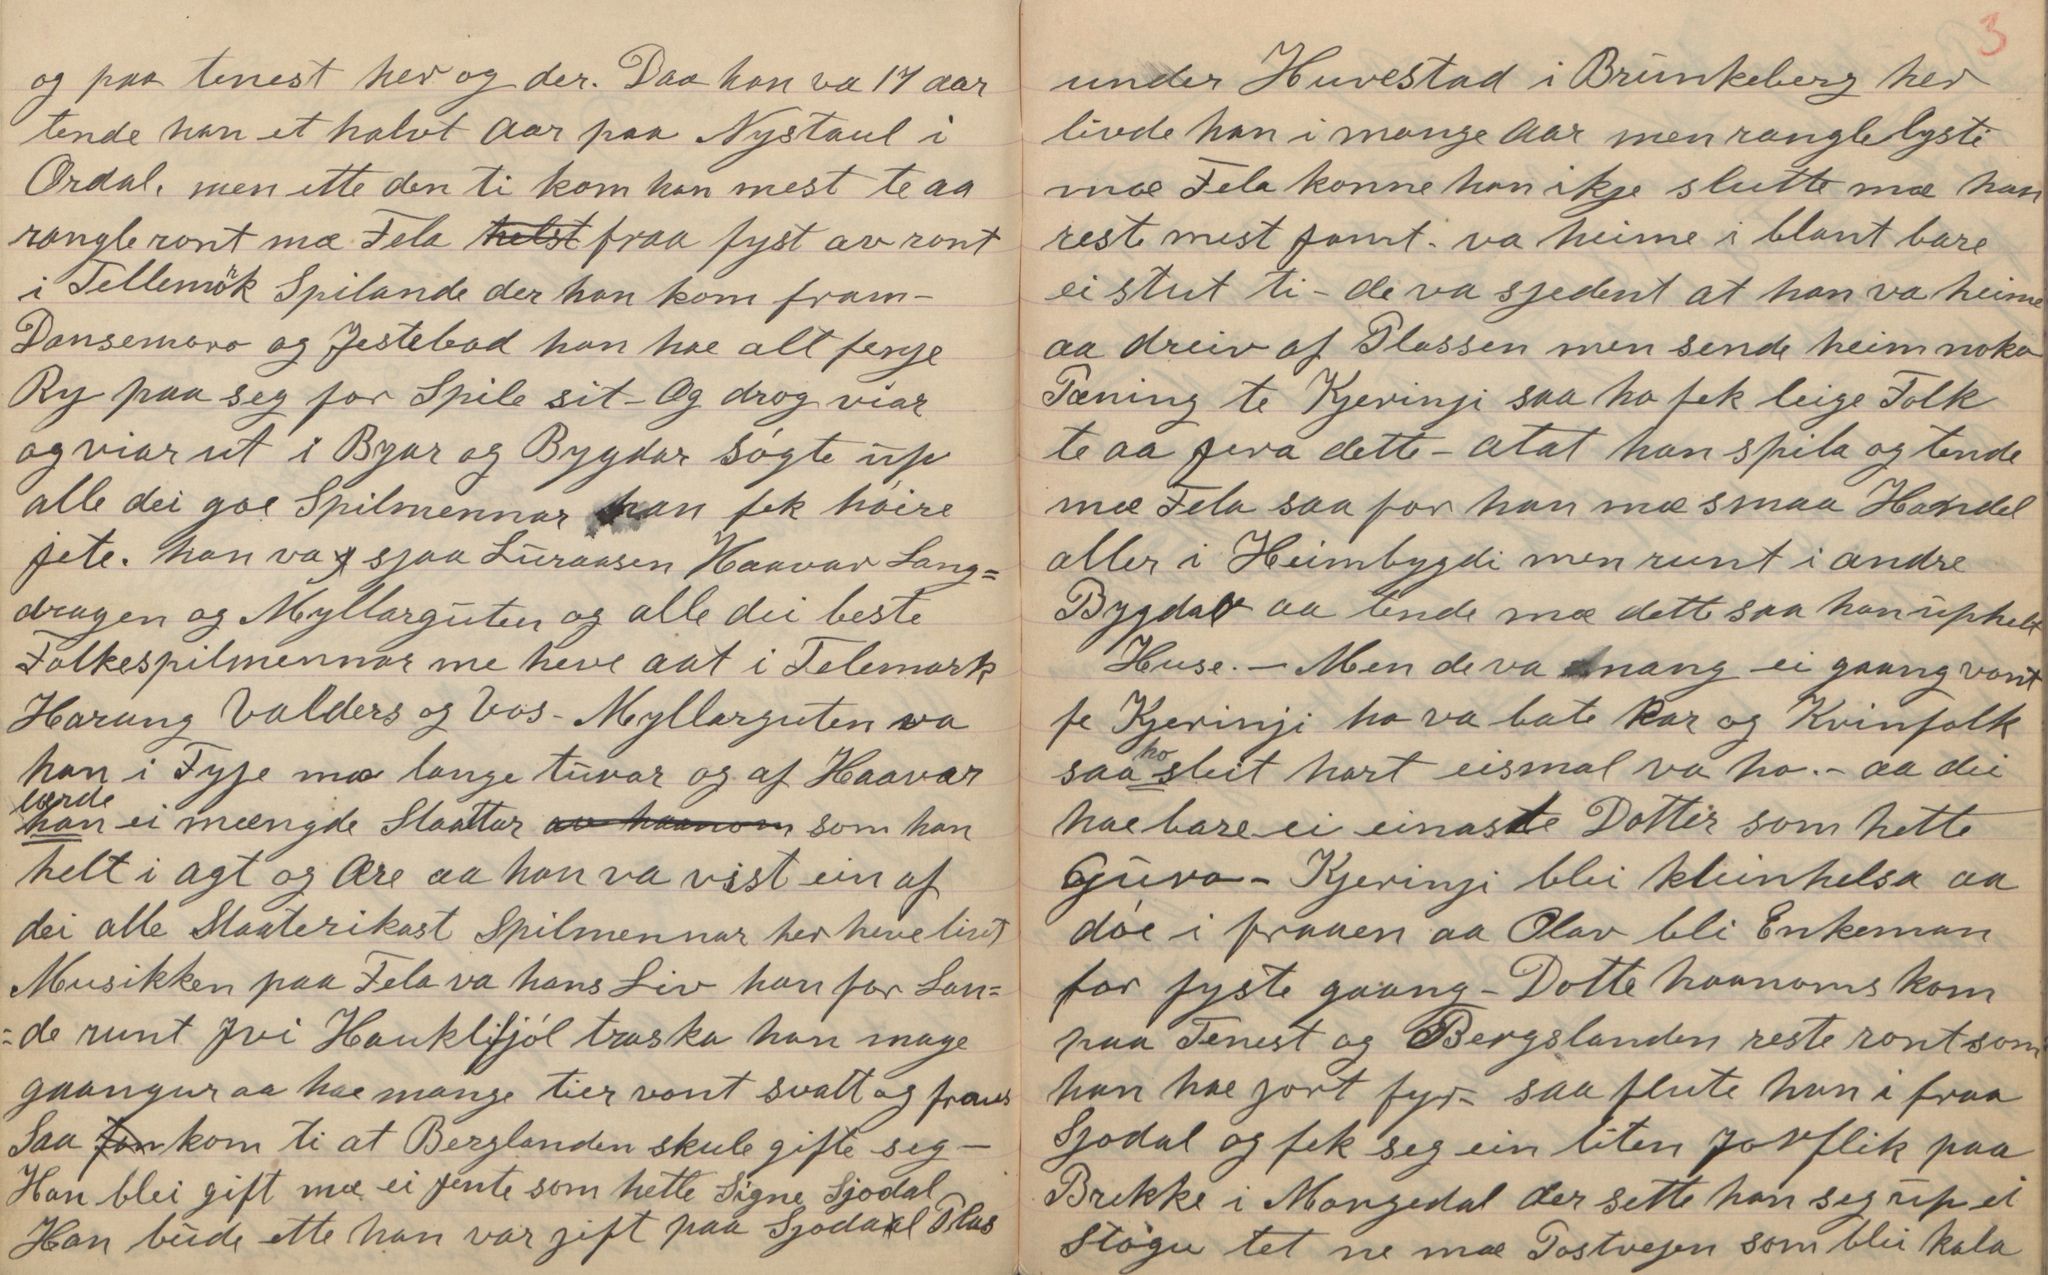 og paa tenest her og der. Daa han va 17 aar
tende han et halvt Aar paa Nystaul i
Ordal. men ette den ti kom han mest te aa
rangle ront mæ Fela helst fraa fyst av ront
i Tellemörk Spilande der han kom fram-
Dansemoro og Jestebod han hae alt fenje
Ry paa seg for Spile sit - Og drog viar
og viar ut i Byar og Bygdar søgte up
alle dei goe Spilmennar han fek høire
jete. han va sjaa Luraasen Haavar Lang=
dragen og Myllarguten og alle dei beste
Folkespilmennar me heve aat i Telemark
Harang Valders og Vos - Myllarguten va
han i Fyje mæ lange tuvar og af Haavar
lærde
han ei mængde Slaattar av haanom som han
helt i agt og Ære aa han va vist ein af
dei alle Slaaterikast Spilmennar her heve livt
Musikken paa Fela va hans Liv han for Lan=
=de runt Ivi Hauklifjöl traska han mage
gaangur aa hae mange tier vont svalt og fraus
Saa fan kom ti at Berglanden skule gifte seg -
Han blei gift mæ ei Jente som hette Signe Sjodal
Han bude ette han var gift paa Sjodaal Plas
3
under Huvestad i Brunkeberg her
livde han i mange Aar men ranglelysti
mæ Fela konne han ikje slutte mæ han
reste mest jamt. va heime i blant bare
ei stut ti - de va sjedent at han va heime
aa dreiv af Plassen men sende heim noka
Pæning te Kjeringi saa ho fek leige Folk
te aa jera dette - atat han spila og tende
mæ Fela saa for han mæ smaa Handel
aller i Heimbygdi men runt i andre
Bygdar aa tende mæ dett saa han uphelt
Huse. - Men de va mang ei gaang vont
fe Kjeringi ho va bate Kar og Kvinfolk
saa ho sleit hart eismal va ho. - aa dei
hae bare ei einaste Dotter som hette
Guro - Kjeringi blei kleinhelsa aa
døe i fraaen aa Olav bli Enkeman
for fyste gaang - Dotte haanoms kom
paa Tenest og Bergslanden reste ront som
han hae jort fyr - saa flute han i fraa
Sjodal og fek seg ein liten Jorflik paa
Brekke i Morgedal der sette han seg up ei
Støgu tet ne mæ Postvejen som blei kala